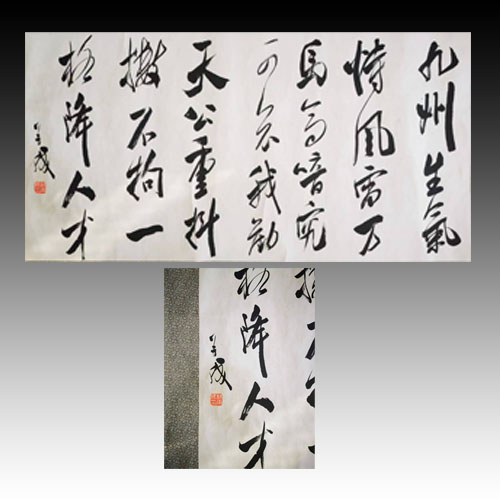 九州生氣
恃風雷万
馬齐喑究
可哀我勸
天公重抖
擞不拘一
格降人才
格降人才